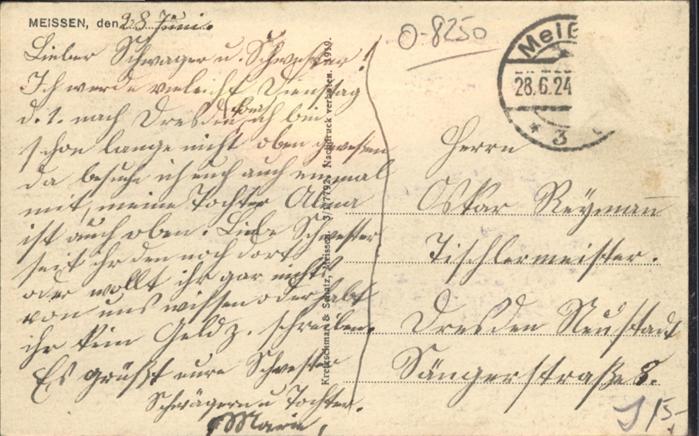 MEISSEN, den 28. Juni.
Lieber Schwager u. Schwester!
Ich werde vieleicht Dienstag
d. 1. nach Dresden ich bin
schon lange nicht oben gewesen
da besuche ich euch auch einmal
mit, meine Tochter Alma
ist auch oben. Liebe Schwester
seit ihr den noch dort
oder wollt ihr gar nichts
von uns wissen oder habt
ihr kein Geld z. schreiben.
Es grüßt eure Schwester
Schwägern u Tochter.
Marie,
Kretzschmar & Schatz, Meissen. 3/27792. Nachdruck verboten. 1919.
O-8250
Meiß
28.6.24
* 3
Herrn
Oskar Reymann
Tischlermeister.
Dresden Neustadt
Sängerstraße 8.